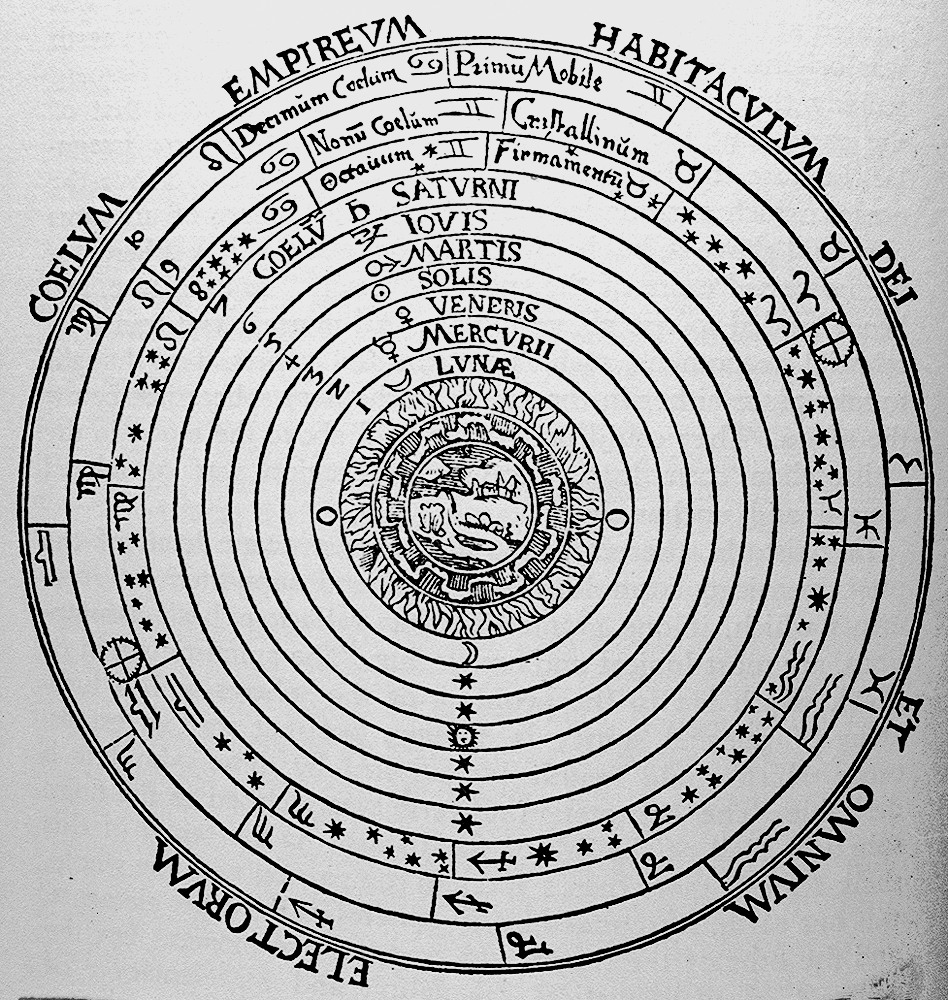 COELVM EMPIREVM HABITACVLVM DEI ET OMNIVM ELECTORVM
Decimūm Coelum ♋ Primū Mobile ♊
Nonū Coelūm ♊ Cristallinūm ♉
Octauum ♊ Firmamentū ♉
COELV̄ ♄ SATVRNI
♃ IOVIS
♂ MARTIS
☉ SOLIS
♀ VENERIS
☿ MERCVRII
☽ LVNÆ
8
9
7
6
5
4
3
2
1